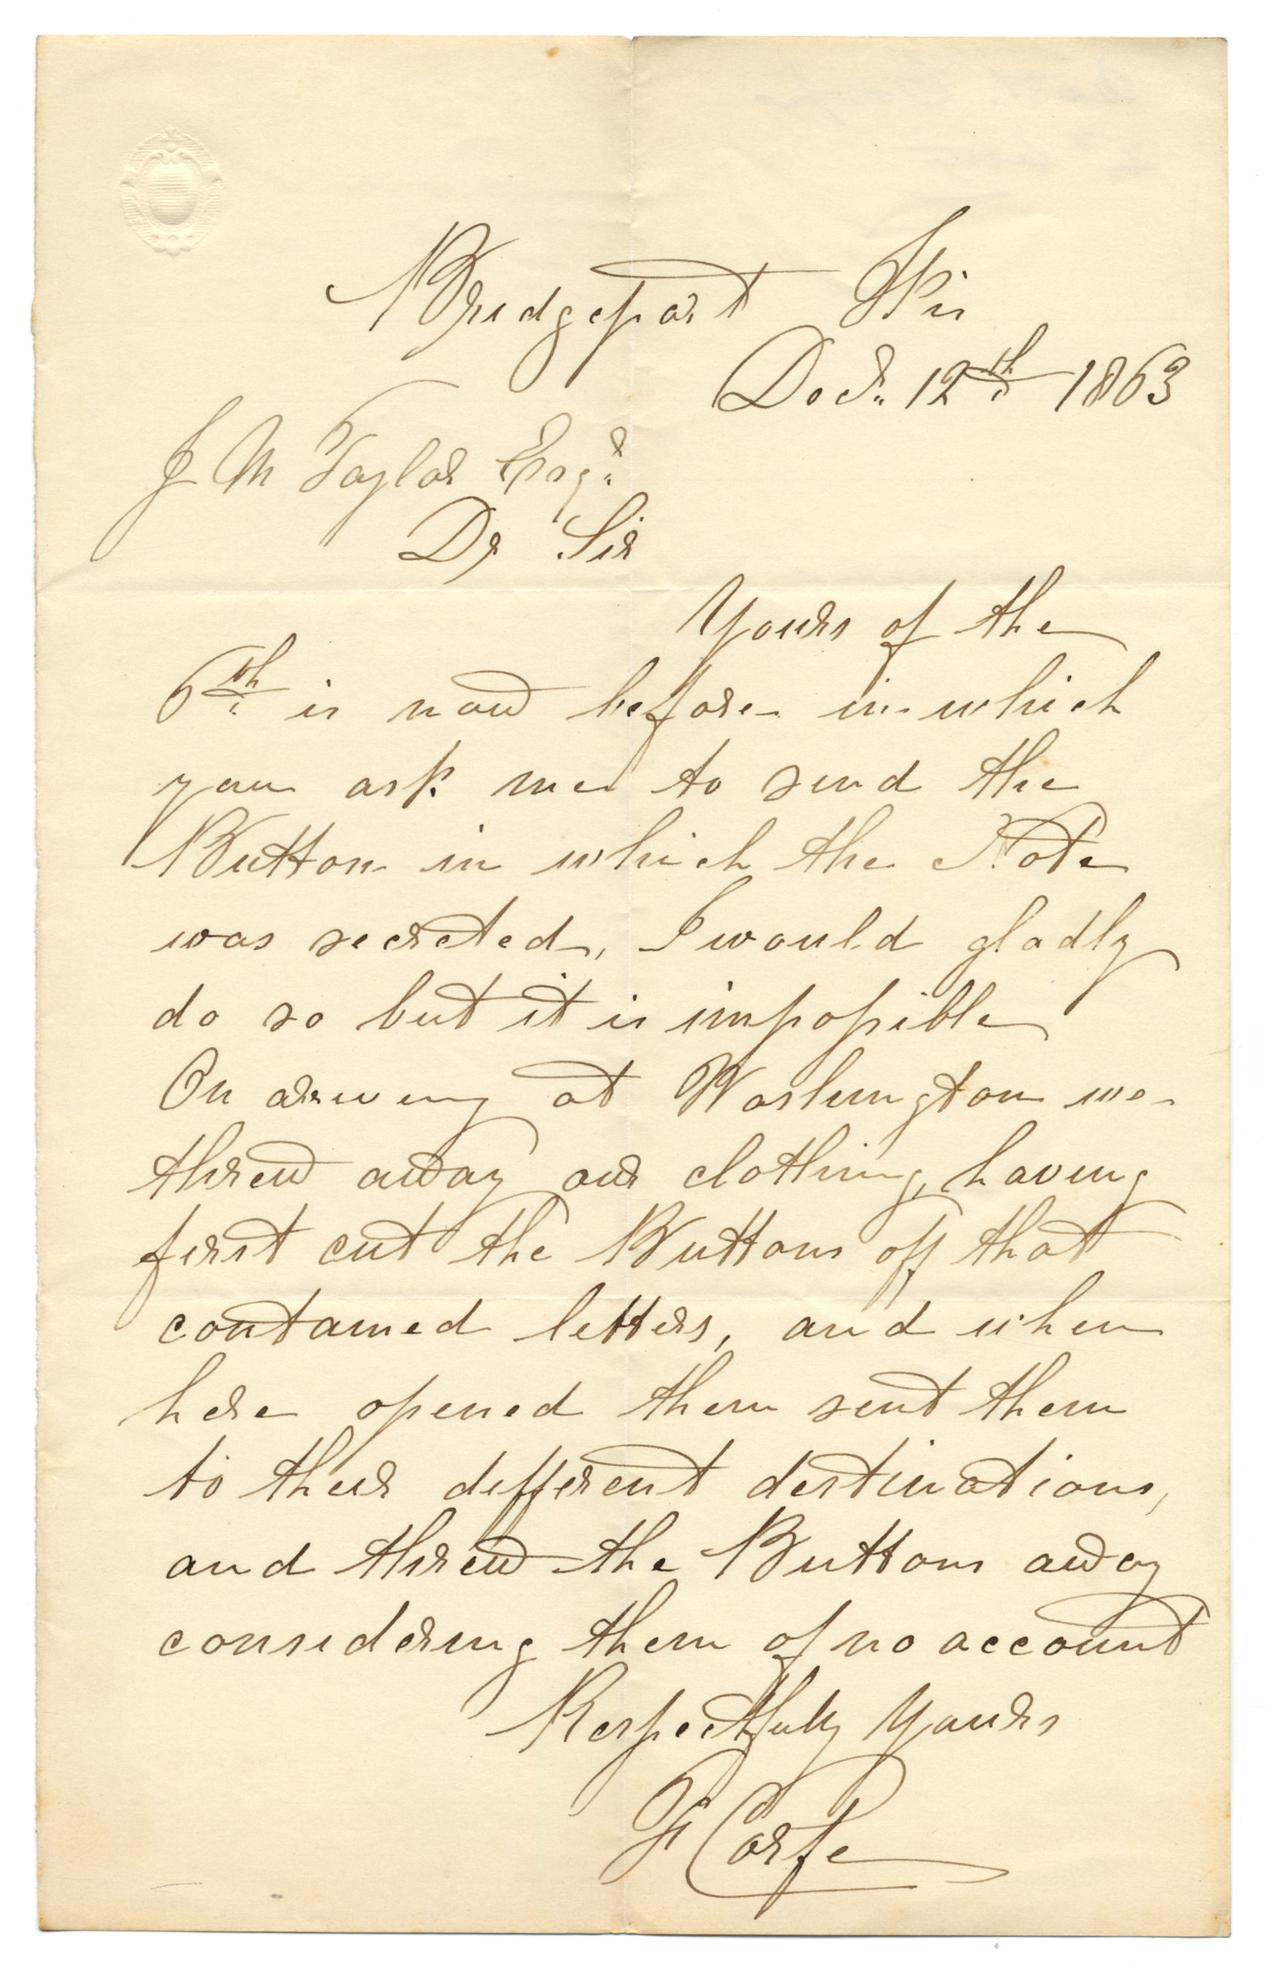 Bridgeport Wis
Decr. 12th 1863
J M Taylor Esqr.
Dr Sir
Yours of the
6th is now before in which
you ask me to send the
Button in which the Note
was secreted, I would gladly
do so but it is impossible
On arriveing at Washington we
threw away our clothing, having
first cut the Buttons off that
contained letters, and when
here opened them sent them
to their different destinations,
and threw the Buttons away
considering them of no account
Respectfully Yours
F Corfe